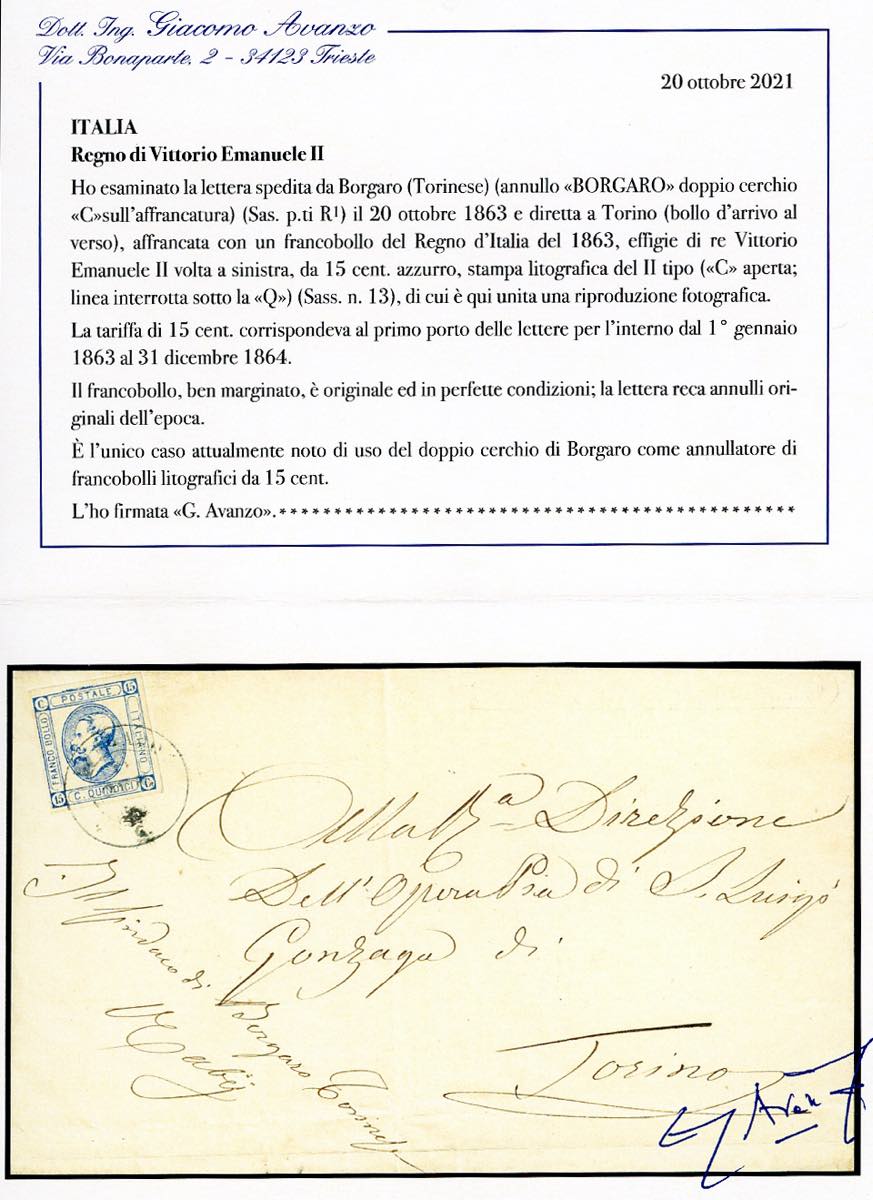 Dott. Ing. Giacomo Avanzo
Via Bonaparte, 2 - 34123 Trieste
20 ottobre 2021
ITALIA
Regno di Vittorio Emanuele II
Ho esaminato la lettera spedita da Borgaro (Torinese) (annullo «BORGARO» doppio cerchio
«C»sull'affrancatura) (Sas. p.ti R¹) il 20 ottobre 1863 e diretta a Torino (bollo d'arrivo al
verso), affrancata con un francobollo del Regno d'Italia del 1863, effigie di re Vittorio
Emanuele II volta a sinistra, da 15 cent. azzurro, stampa litografica del II tipo («C» aperta;
linea interrotta sotto la «Q») (Sass. n. 13), di cui è qui unita una riproduzione fotografica.
La tariffa di 15 cent. corrispondeva al primo porto delle lettere per l'interno dal 1° gennaio
1863 al 31 dicembre 1864.
Il francobollo, ben marginato, è originale ed in perfette condizioni; la lettera reca annulli ori-
ginali dell'epoca.
È l'unico caso attualmente noto di uso del doppio cerchio di Borgaro come annullatore di
francobolli litografici da 15 cent.
L'ho firmata «G. Avanzo».************************************************
C POSTALE 15
FRANCO BOLLO
ITALIANO
15 C. QUINDICI C
Alla Direzione
Dell'Opera Pia di S. Luigi
Gonzaga di
Torino
Il Sindaco di Borgaro Torinese